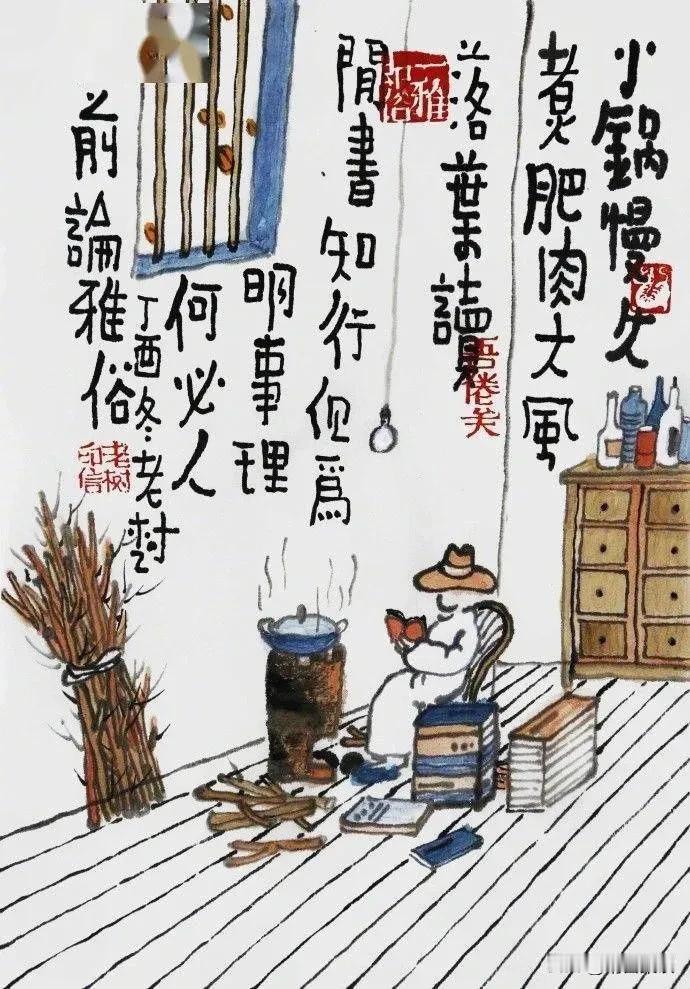 小鍋慢火
煮肥肉大風
落葉讀
閒書知行但爲
明事理
何必人
前論雅俗
丁酉冬老樹
老树印信